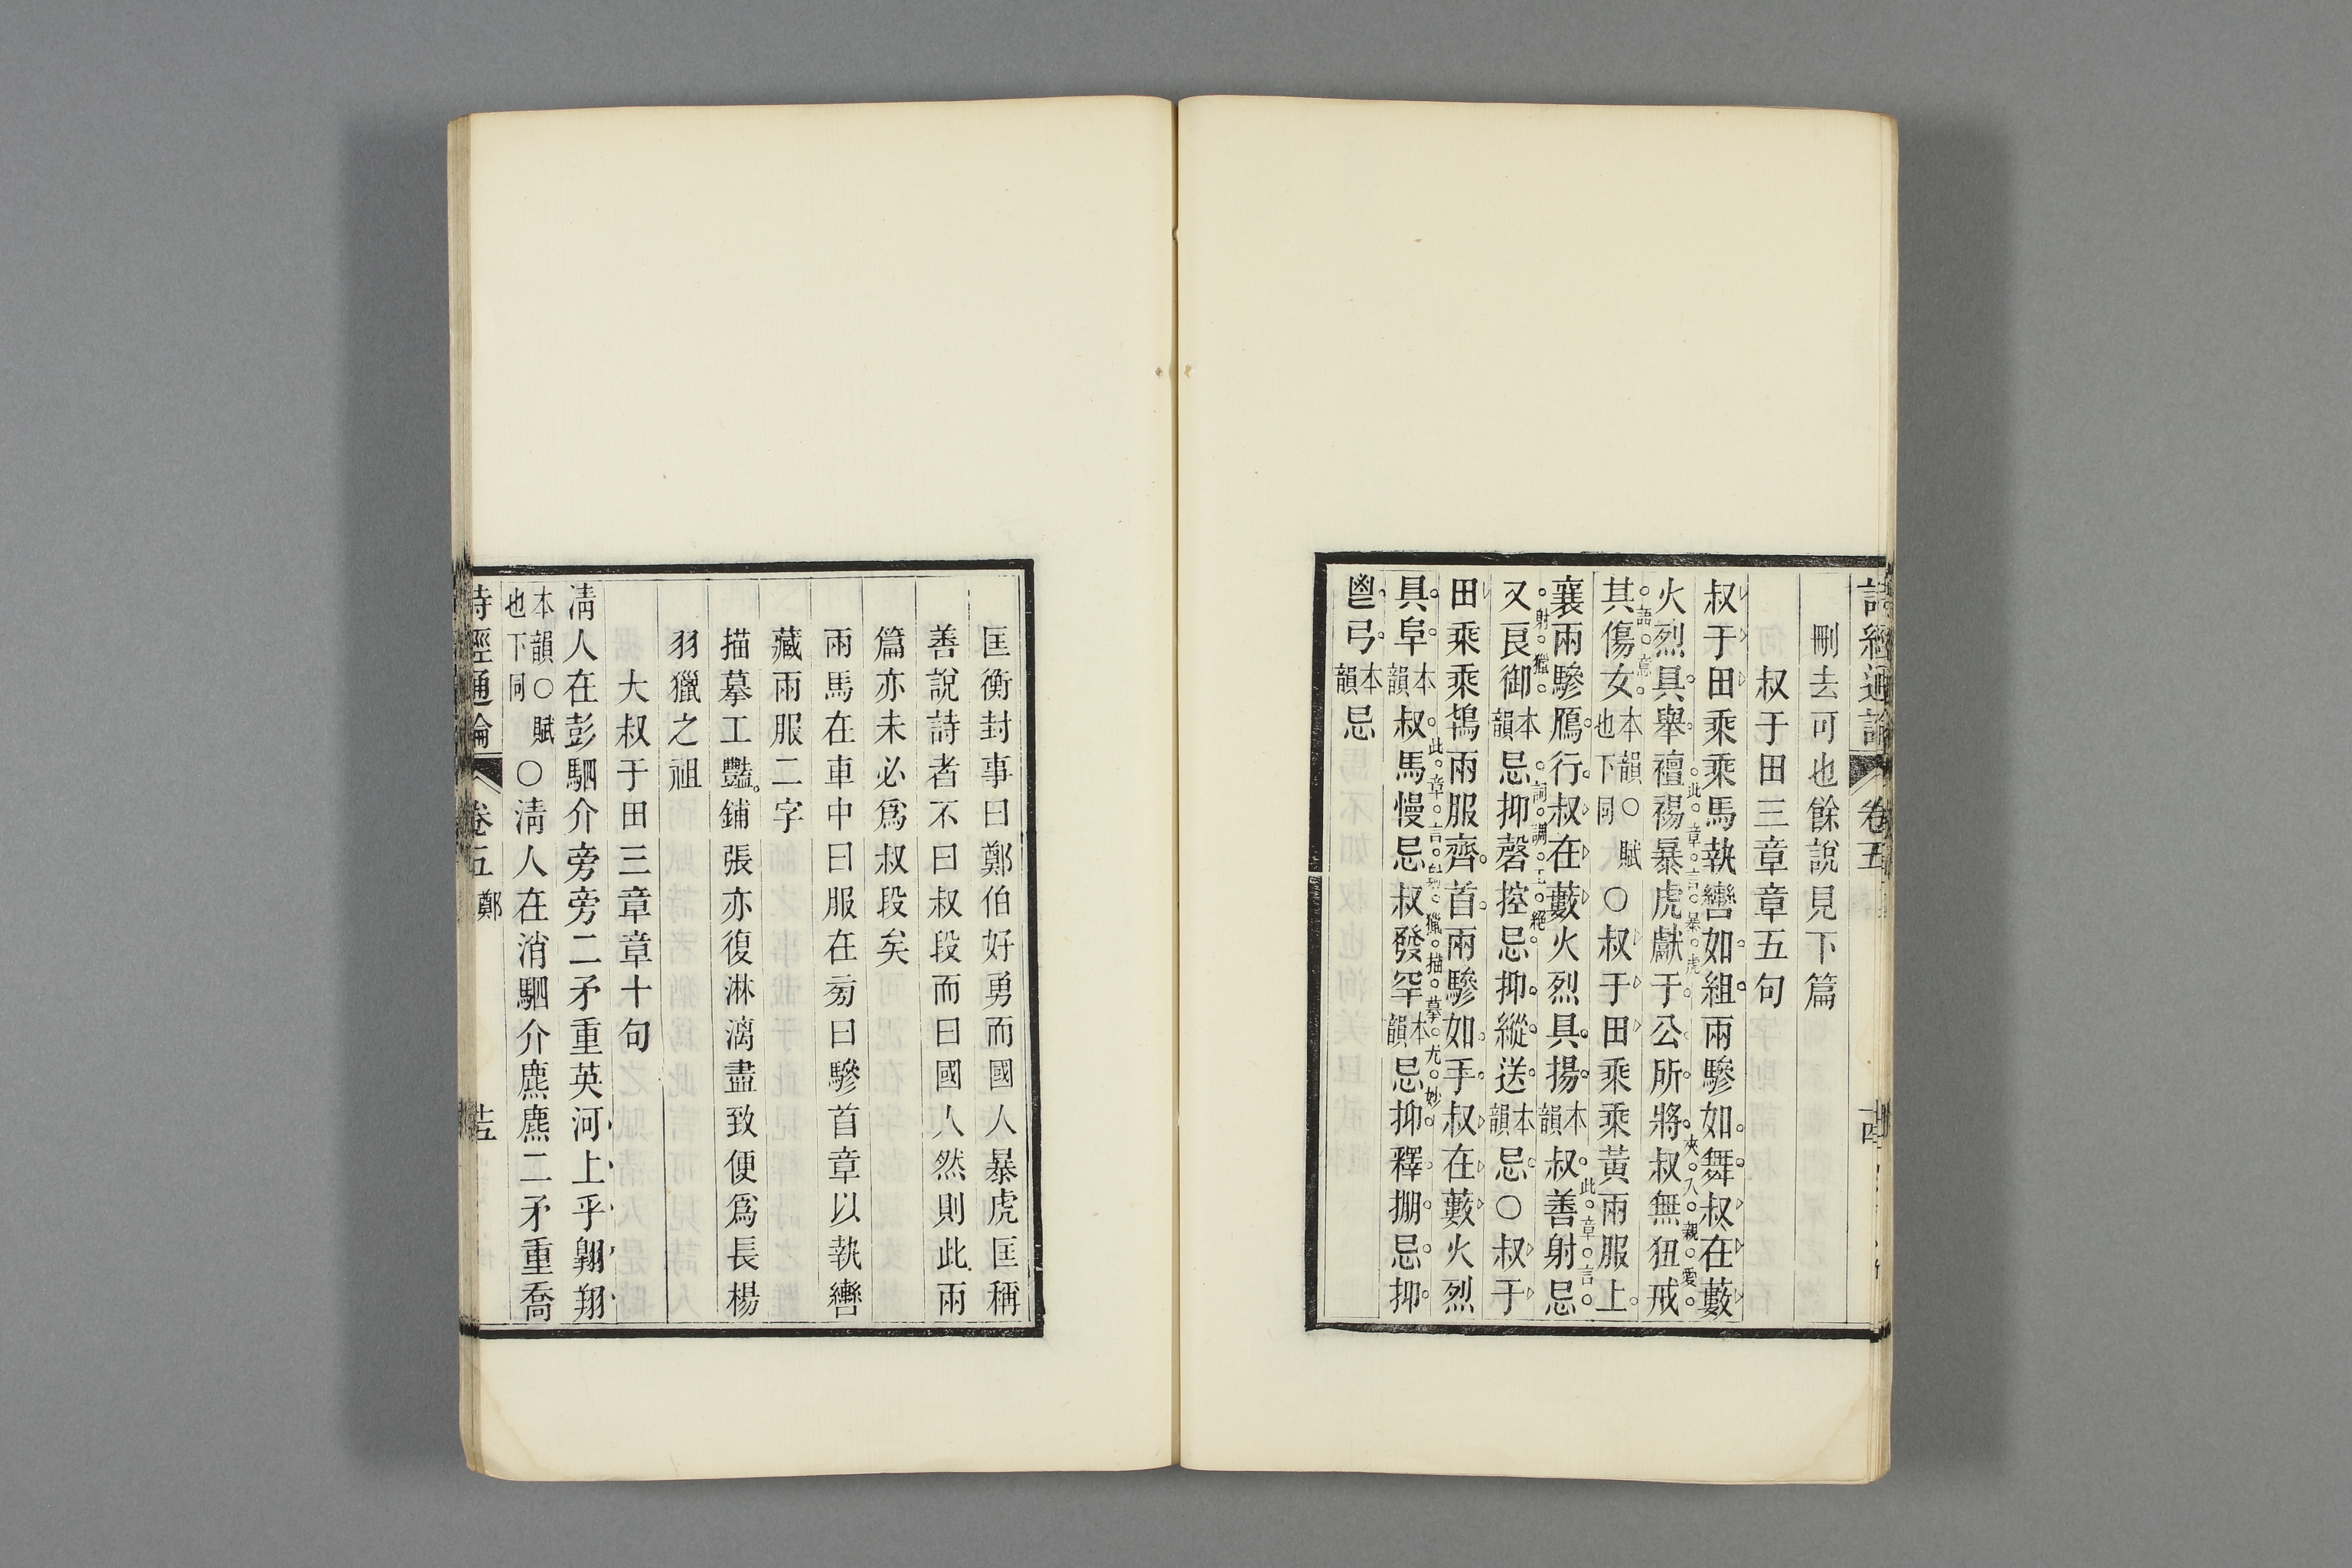 詩經通論 卷五 十四
刪去可也餘說見下篇
叔于田三章章五句
叔于田乘乘馬執轡如組兩驂如舞叔在藪
火烈具舉襢裼暴虎獻于公所將叔無狃戒
此章言暴虎
夾入親愛
其傷女本韻也○賦下同○叔于田乘乘黃兩服上
語意
襄兩驂鴈行叔在藪火烈具揚本韻叔善射忌
此章言
又良御本韻忌抑磬控忌抑縱送本韻忌○叔于
射獵詞調工絕
田乘乘鴇兩服齊首兩驂如手叔在藪火烈
具阜本韻叔馬慢忌叔發罕本韻忌抑釋掤忌抑
此章言射獵描摹尤妙
鬯弓本韻忌
匡衡封事曰鄭伯好勇而國人暴虎匡稱
善說詩者不曰叔段而曰國人然則此兩
篇亦未必爲叔段矣
兩馬在車中曰服在旁曰驂首章以執轡
藏兩服二字
描摹工豔鋪張亦復淋漓盡致便爲長楊
羽獵之祖
大叔于田三章章十句
淸人在彭駟介旁旁二矛重英河上乎翱翔
本韻○賦也下同○淸人在消駟介麃麃二矛重喬
詩經通論 卷五 鄭 十五